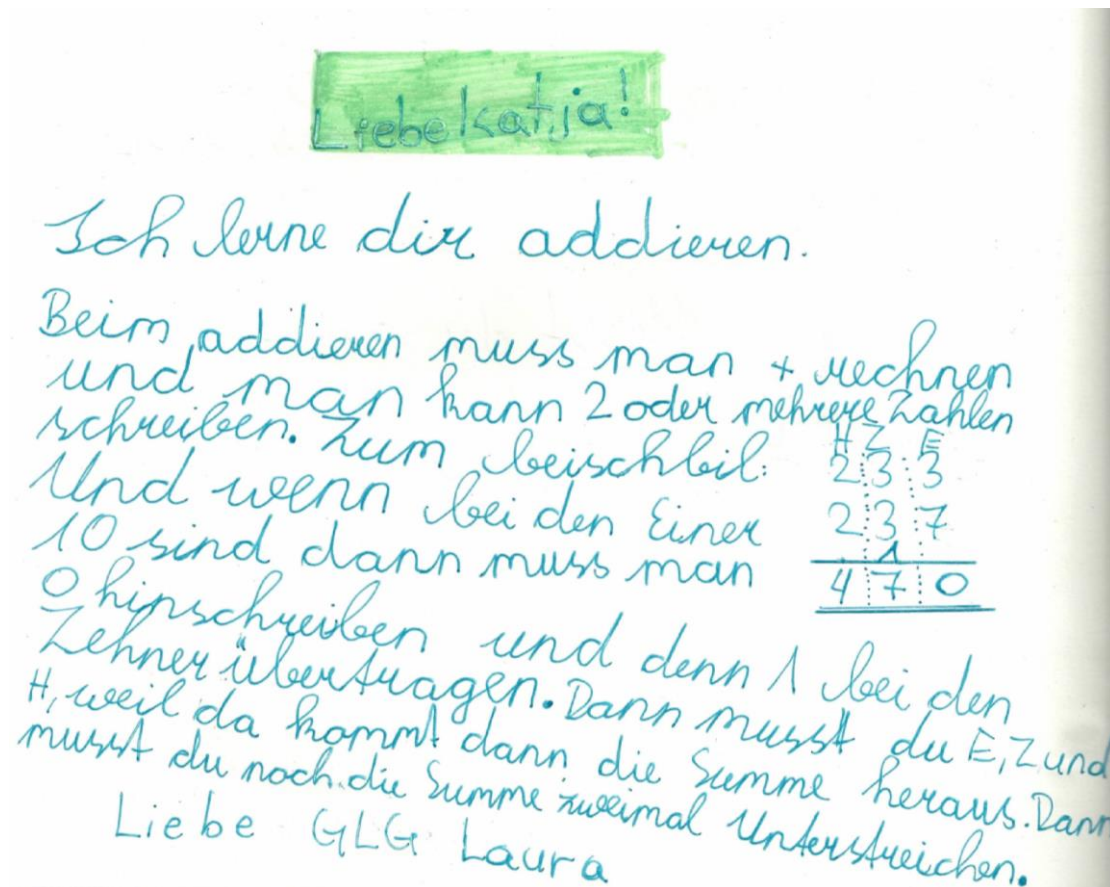 Liebe Katja!
Ich lerne dir addieren.
Beim addieren muss man + rechnen
und man kann 2 oder mehrere Zahlen
schreiben. Zum beischbil:
H Z E
2 3 3
Und wenn bei den Einer
2 3 7
10 sind dann muss man
1
4 7 0
0 hinschreiben und denn 1 bei den
Zehner übertragen. Dann musst du E, Z und
H, weil da kommt dann die Summe heraus. Dann
musst du noch die Summe zweimal Unterstreichen.
Liebe GLG Laura